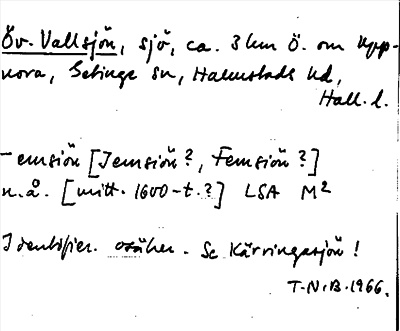 Öv. Vallsjön, sjö, ca. 3 km Ö. om Upp-
nora, Getinge sn, Halmstads hd,
Hall. l.
-emsiön [Jemsiön?, Femsiön?]
n.å. [mitt. 1600-t.?] LSA M2
Identifier. osäker. Se Kärringasjön!
T.N.B. 1966.